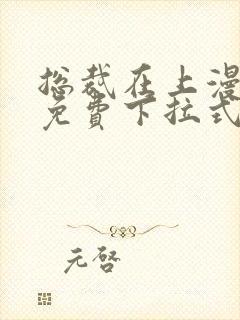 总裁在上漫
免費下拉式
元啓